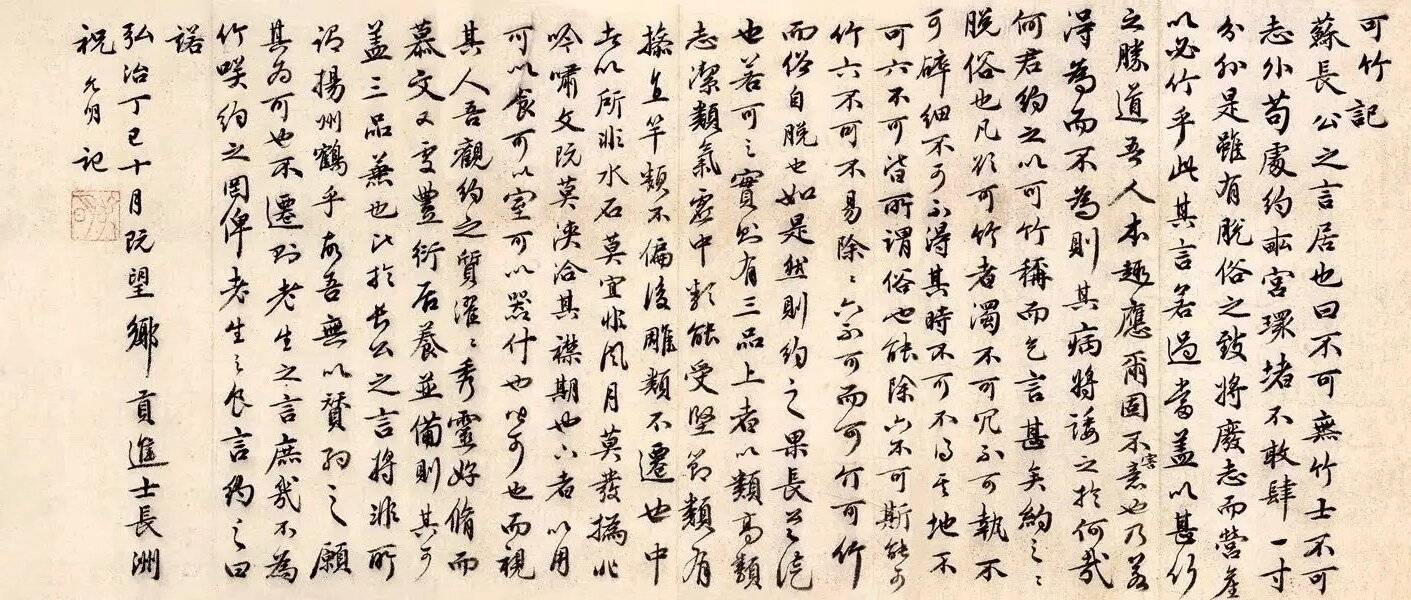 可竹記
蘇長公之言居也曰不可無竹士不可
志外苟處約畝宮環堵不敢肆一寸
分外是雖有脫俗之致將廢志而營產
以必竹乎此其言若過當蓋以甚竹
之勝道吾人本趣應爾固不害意也乃若
得為而不為則其病將諉之於何哉
何君約之以可竹稱而乞言甚矣約之之
脫俗也凡欲可竹者濁不可冗不可執不
可碎細不可不得其時不可不得其地不
可六不可皆所謂俗也能除六不可斯能可
竹六不可不易除除六不可而可竹可竹
而俗自脫也如是然則約之果長公徒
也若可之實則有三品上者以類高類
志潔類氣虛中類能受堅節類有
操直竿類不偏後雕類不遷也中
者以所非水石莫宜非風月莫發撝此
吟嘯文阮莫浹洽其襟期也下者以用
可以食可以室可以器什也皆可也而視
其人吾觀約之質濯濯秀靈好脩而
慕文又雯豐衍居養並備則其可
蓋三品兼也比於長公之言將非所
謂揚州鶴乎哉吾無以贊約之願
其為可也不遷於老生之言庶幾不為
竹咲約之罔俾老生之食言約之曰
諾
弘治丁巳十月既望鄉貢進士長洲
祝允明記